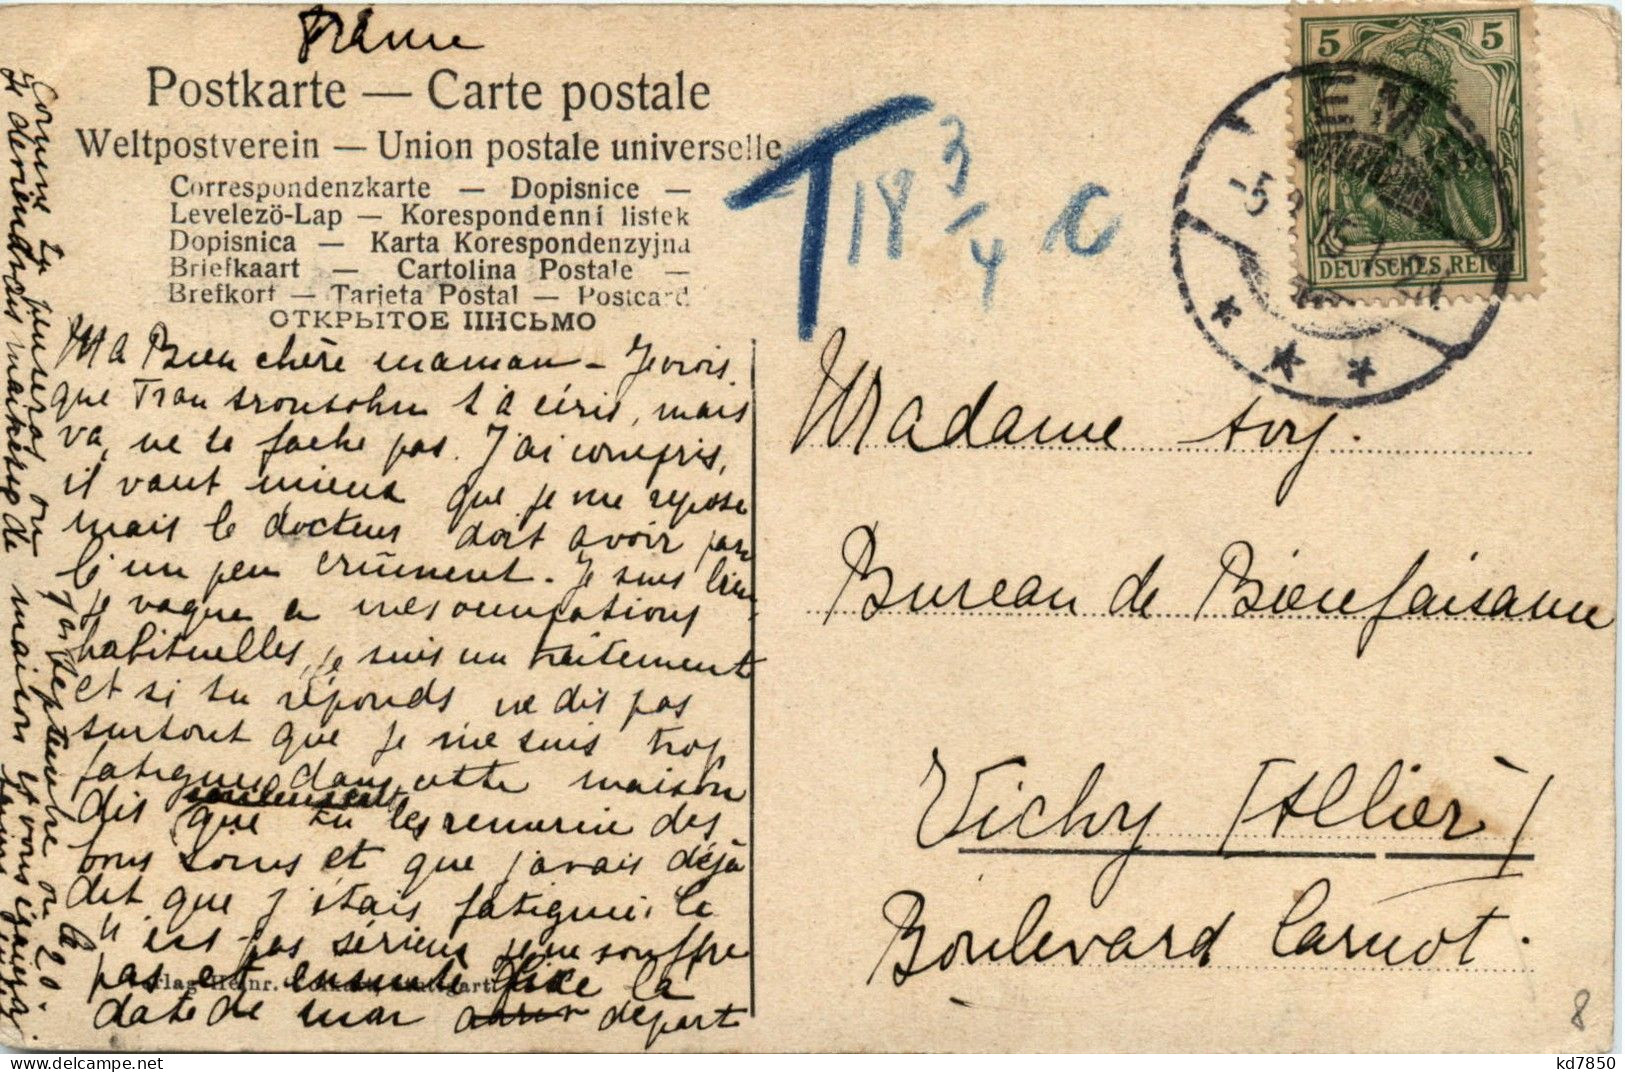 Postkarte — Carte postale
Weltpostverein — Union postale universelle
Correspondenzkarte — Dopisnice —
Levelezö-Lap — Korespondenní listek
Dopisnica — Karta Korespondenzyjna
Briefkaart — Cartolina Postale —
Brefkort — Tarjeta Postal — Postcard
ОТКРЫТОЕ ПИСЬМО
T 18 3/4 c
5 5
DEUTSCHES REICH
Ma Bien chère maman - Je vois
que t'a écris, mais
va, ne te fache pas. J'ai compris,
il vaut mieux que je me repose
mais le docteur doit avoir
un peu crûment. Je suis bien
je vaque a mes occupations
habituelles, je suis un traitement
et si tu réponds ne dis pas
surtout que je me suis trop
fatiguée dans cette maison
dis seulement que tu les remercie des
bons soins et que j'avais déjà
dit que j'étais fatiguée. Ce
n'est pas sérieux je ne souffre
pas et ensuite fixe la
date de mon départ
Comme tu penseras ou le
7 septembre ou 20.
Je deviendrais maitresse de maison et vous
Madame Avy.
Bureau de Bienfaisance
Vichy (Allier)
Boulevard Carnot.
8
kd7850